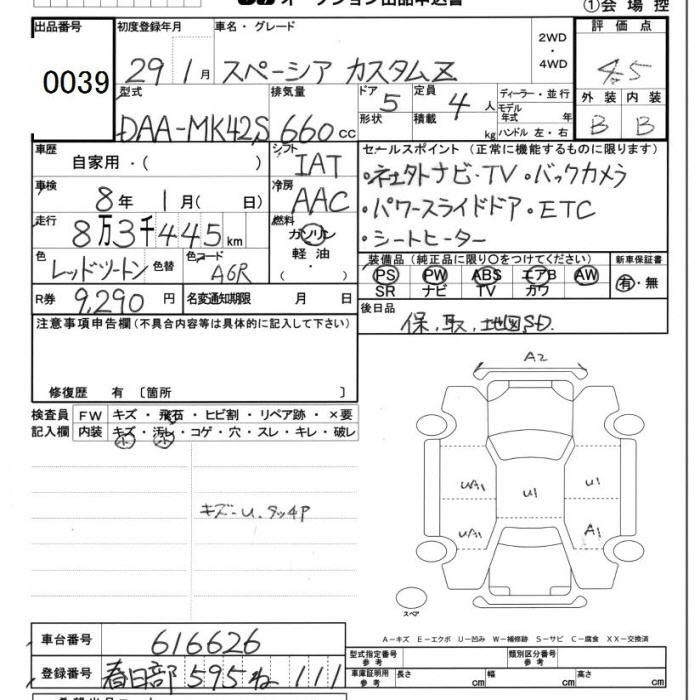 オークション出品申込書
①会場控
出品番号 初度登録年月 車名・グレード 評価点
0039 29 1月 スペーシア カスタムZ 2WD・4WD 4.5
型式 排気量 ドア 5 定員 4人 ディーラー・並行 外装 内装
DAA-MK42S 660cc 形状 積載 kg モデル年式 年式 ハンドル 左・右 B B
車歴 自家用・( ) シフト IAT セールスポイント (正常に機能するものに限ります)
車検 8年 1月( 日) 冷房 AAC ・ネェ外ナビ・TV・バックカメラ
走行 8万3千445km 燃料 ガソリン 軽油 ( ・ ) ・パワースライドドア・ETC
・シートヒーター
色 レッドツートン 色替 色コード A6R 装備品 (純正品に限り○をつけてください) 新車保証書
PS PW ABS エアB AW 有・無
SR ナビ TV カワ
R券 9,290円 名変通知期限 月 日 後日品
保、取、地図SD.
注意事項申告欄 (不具合内容等は具体的に記入して下さい)
修復歴 有 〔箇所 〕
検査員 FW キズ・飛石・ヒビ割・リペア跡・×要
記入欄 内装 キズ・汚レ・コゲ・穴・スレ・キレ・破レ
小 小
キズ-U.タッチP
A2
UA1 U1 U1
UA1 A1
スペア
A-キズ E-エクボ U-凹み W-補修跡 S-サビ C-腐食 XX-交換済
車台番号 616626 型式指定番号 参考 類別区分番号 参考
登録番号 春日部 595 ね 111 車庫証明用 参考 長さ cm 幅 cm 高さ cm